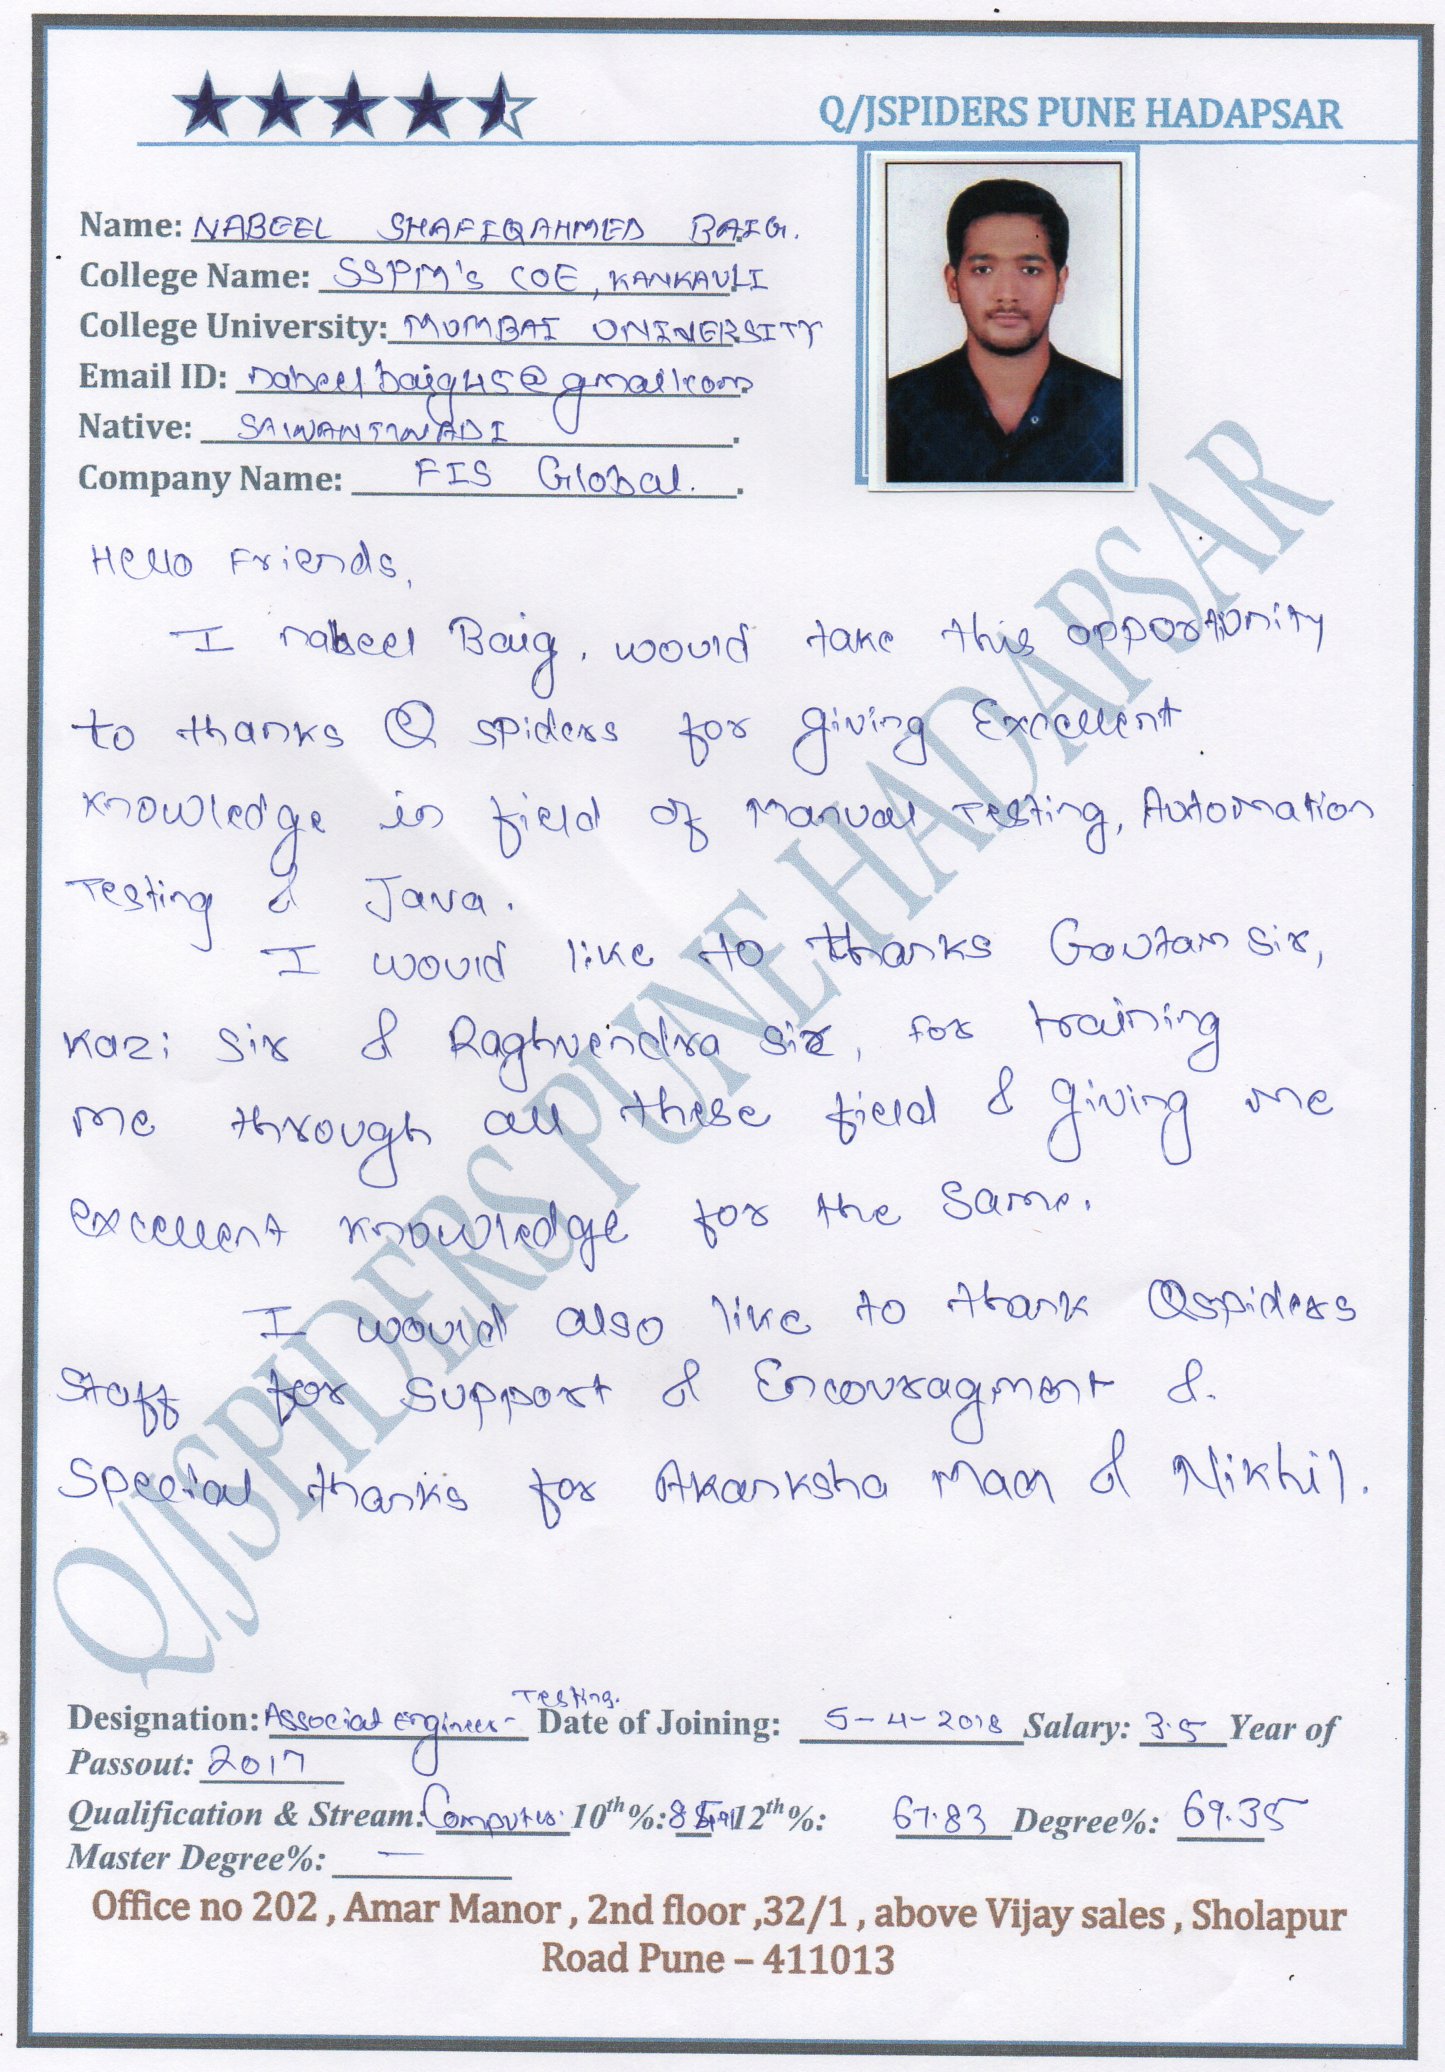 Q/JSPIDERS PUNE HADAPSAR
Name: NABEEL SHAFIQAHMED BAIG.
College Name: SSPM's COE, KANKAVLI
College University: MUMBAI UNIVERSITY
Email ID: nabeelbaig45@gmail.com
Native: SAWANTWADI
Company Name: FIS Global.
Hello Friends,
I nabeel Baig, would take this opportunity
to thanks Q spiders for giving Excellent
knowledge in field of Manual Testing, Automation
Testing & Java.
I would like to thanks Goutam sir,
Kazi Sir & Raghvendra sir, for training
me through all these field & giving me
excellent knowledge for the same.
I would also like to thank Qspiders
Staff for Support & Encouragment &
Special thanks for Akanksha Mam & Nikhil.
Testing.
Designation: Associat engineer- Date of Joining: 5-4-2018 Salary: 3.5 Year of
Passout: 2017
Qualification & Stream: Computer 10th%: 12th%: 67.83 Degree%: 69.35
Master Degree%: —
Office no 202 , Amar Manor , 2nd floor ,32/1 , above Vijay sales , Sholapur
Road Pune – 411013
Q/JSPIDERS PUNE HADAPSAR